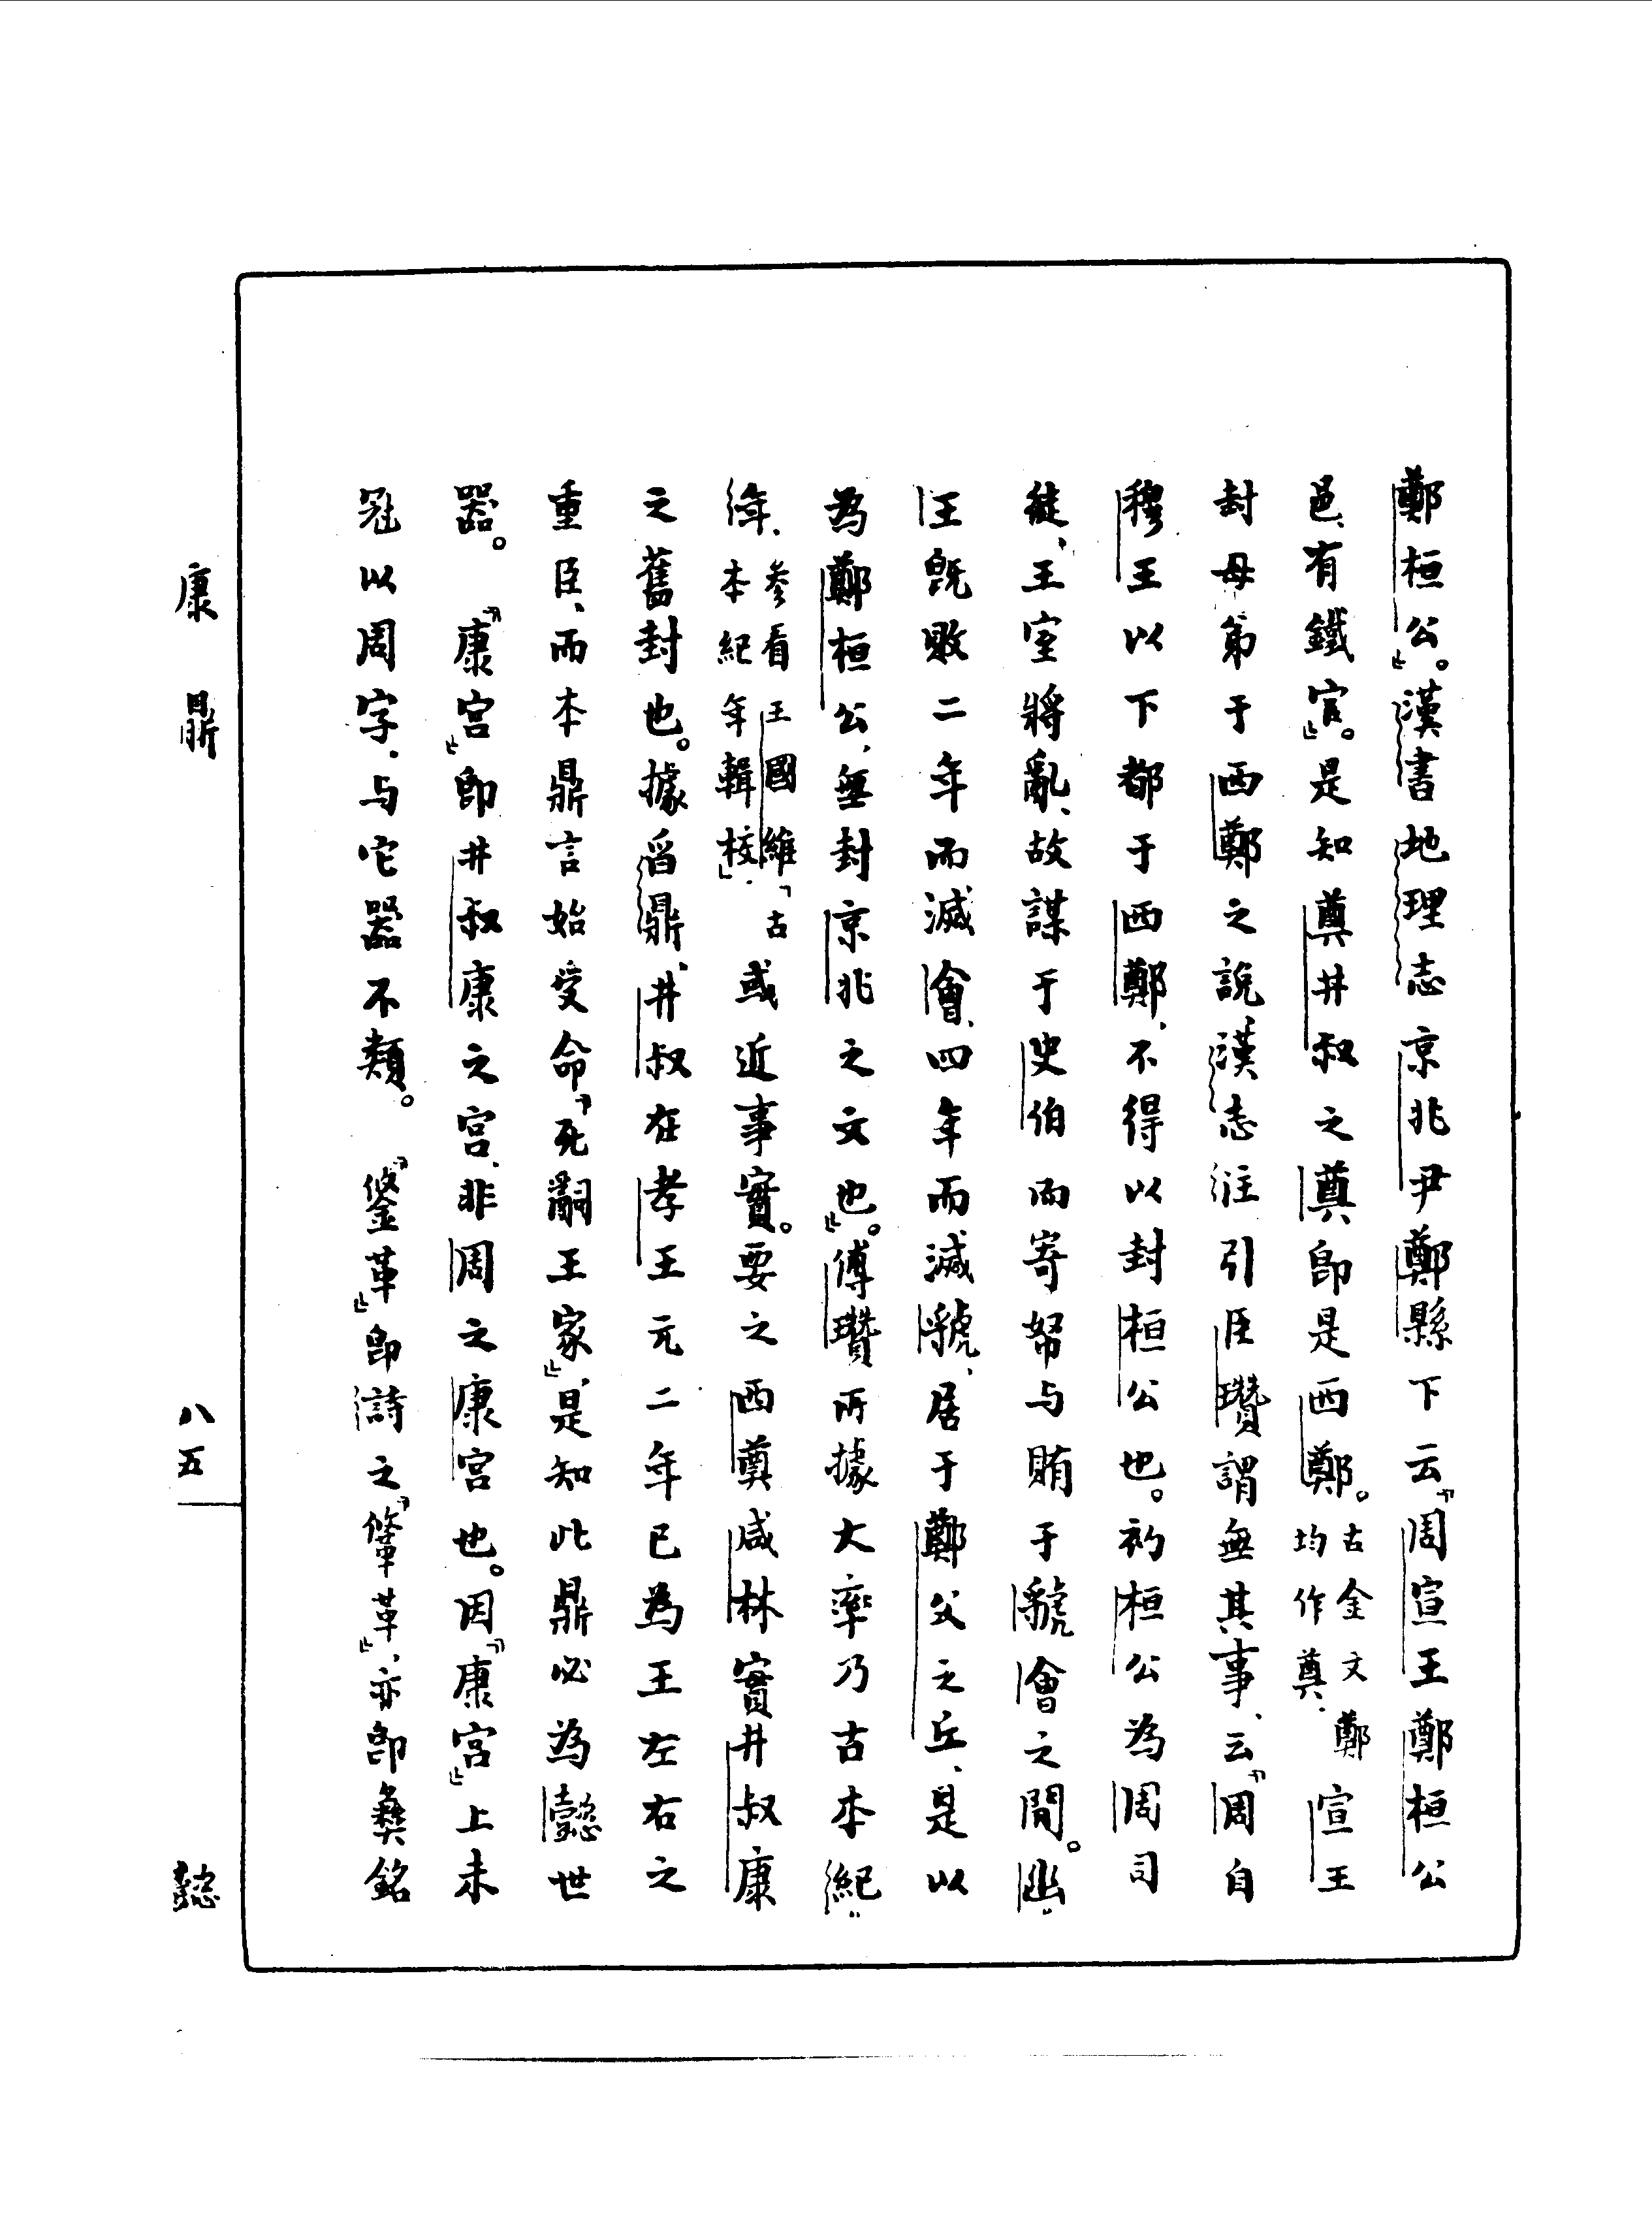 鄭桓公』。漢書地理志京兆尹鄭縣下云『周宣王鄭桓公
邑、有鐵官』。是知奠井叔之奠即是西鄭。古金文鄭均作奠．宣王
封母弟于西鄭之說、漢志注引臣瓚謂無其事、云『周自
穆王以下都于西鄭、不得以封桓公也。初桓公為周司
徒、王室將亂、故謀于史伯而寄帑与賄于虢會之間。幽
王既敗二年而滅會、四年而滅虢、居于鄭父之丘、是以
為鄭桓公、無封京兆之文也』。傅瓚所據大率乃古本紀
年、參看王國維「古本紀年輯校」．或近事實。要之西奠咸林實井叔康
之舊封也。據舀鼎、井叔在孝王元二年已為王左右之
重臣、而本鼎言始受命『死嗣王家』、是知此鼎必為懿世
器。『康宮』即井叔康之宮、非周之康宮也。因『康宮』上未
冠以周字、与它器不類。『鋚革』即詩之『鞗革』、亦即彝銘
康鼎
八五
懿